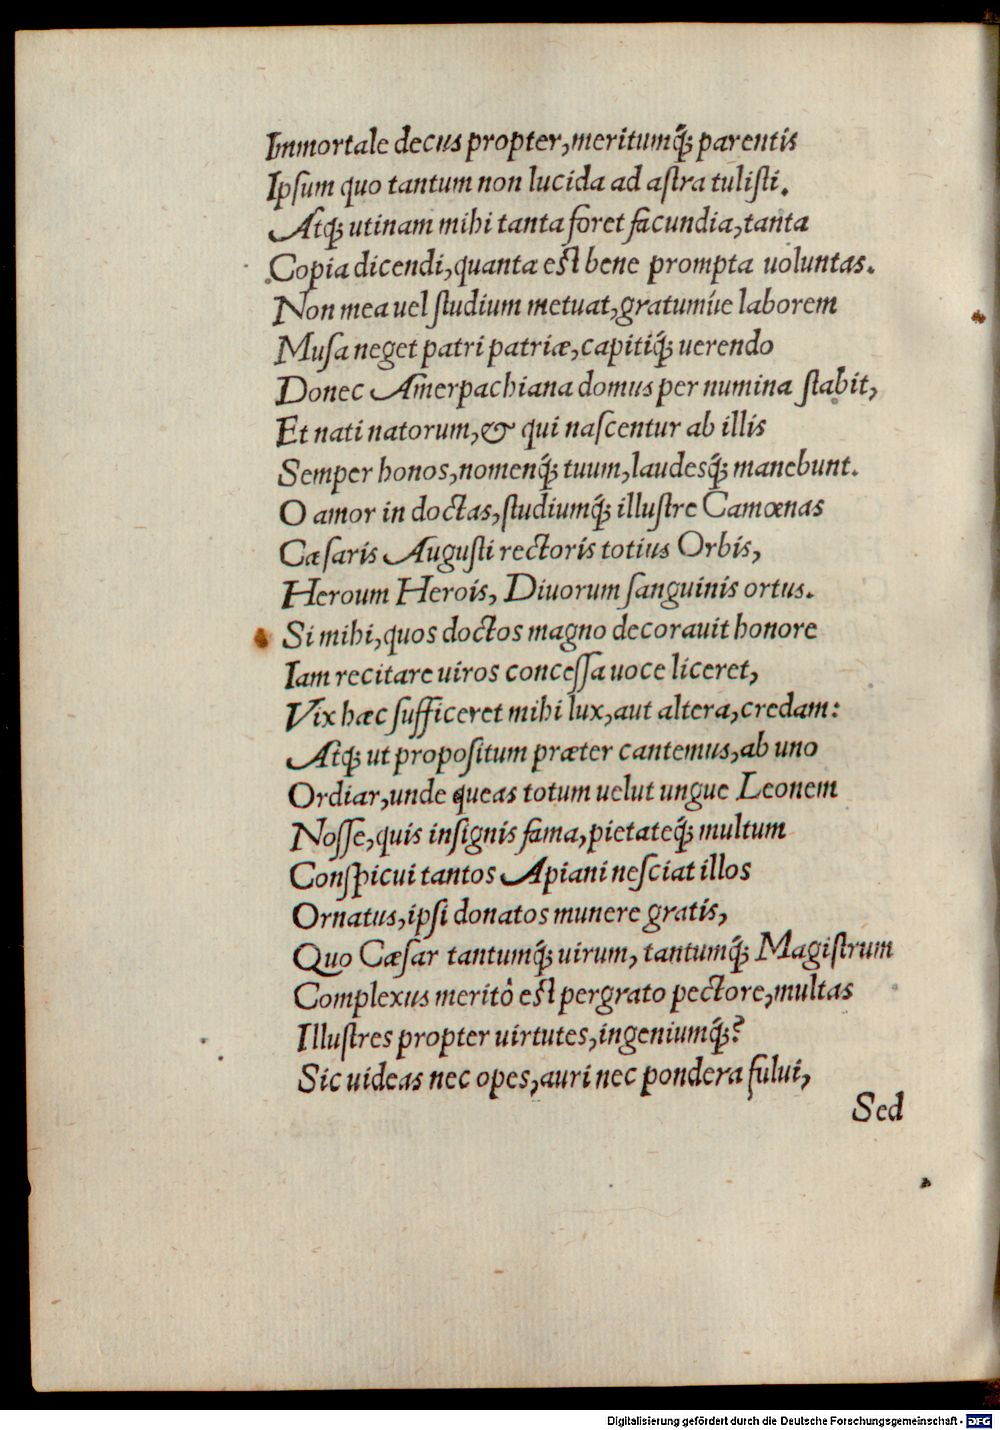 Immortale decus propter, meritumq́; parentis
Ipſum quo tantum non lucida ad aſtra tuliſti.
Atq; utinam mihi tanta foret facundia, tanta
Copia dicendi, quanta eſt bene prompta uoluntas.
Non mea uel ſtudium metuat, gratumúe laborem
Muſa neget patri patriæ, capitiq́; uerendo
Donec Amerpachiana domus per numina ſtabit,
Et nati natorum, & qui naſcentur ab illis
Semper honos, nomenq́; tuum, laudesq́; manebunt.
O amor in doctas, ſtudiumq́; illuſtre Camœnas
Cæſaris Auguſti rectoris totius Orbis,
Heroum Herois, Diuorum ſanguinis ortus.
Si mihi, quos doctos magno decorauit honore
Iam recitare uiros conceſſa uoce liceret,
Vix hæc ſufficeret mihi lux, aut altera, credam:
Atq; ut propoſitum præter cantemus, ab uno
Ordiar, unde queas totum uelut ungue Leonem
Noſſe, quis inſignis fama, pietateq́; multum
Conſpicui tantos Apiani neſciat illos
Ornatus, ipſi donatos munere gratis,
Quo Cæſar tantumq́; uirum, tantumq́; Magiſtrum
Complexus meritò eſt pergrato pectore, multas
Illuſtres propter uirtutes, ingeniumq́;?
Sic uideas nec opes, auri nec pondera fului,
Sed
Digitalisierung gefördert durch die Deutsche Forschungsgemeinschaft - DFG